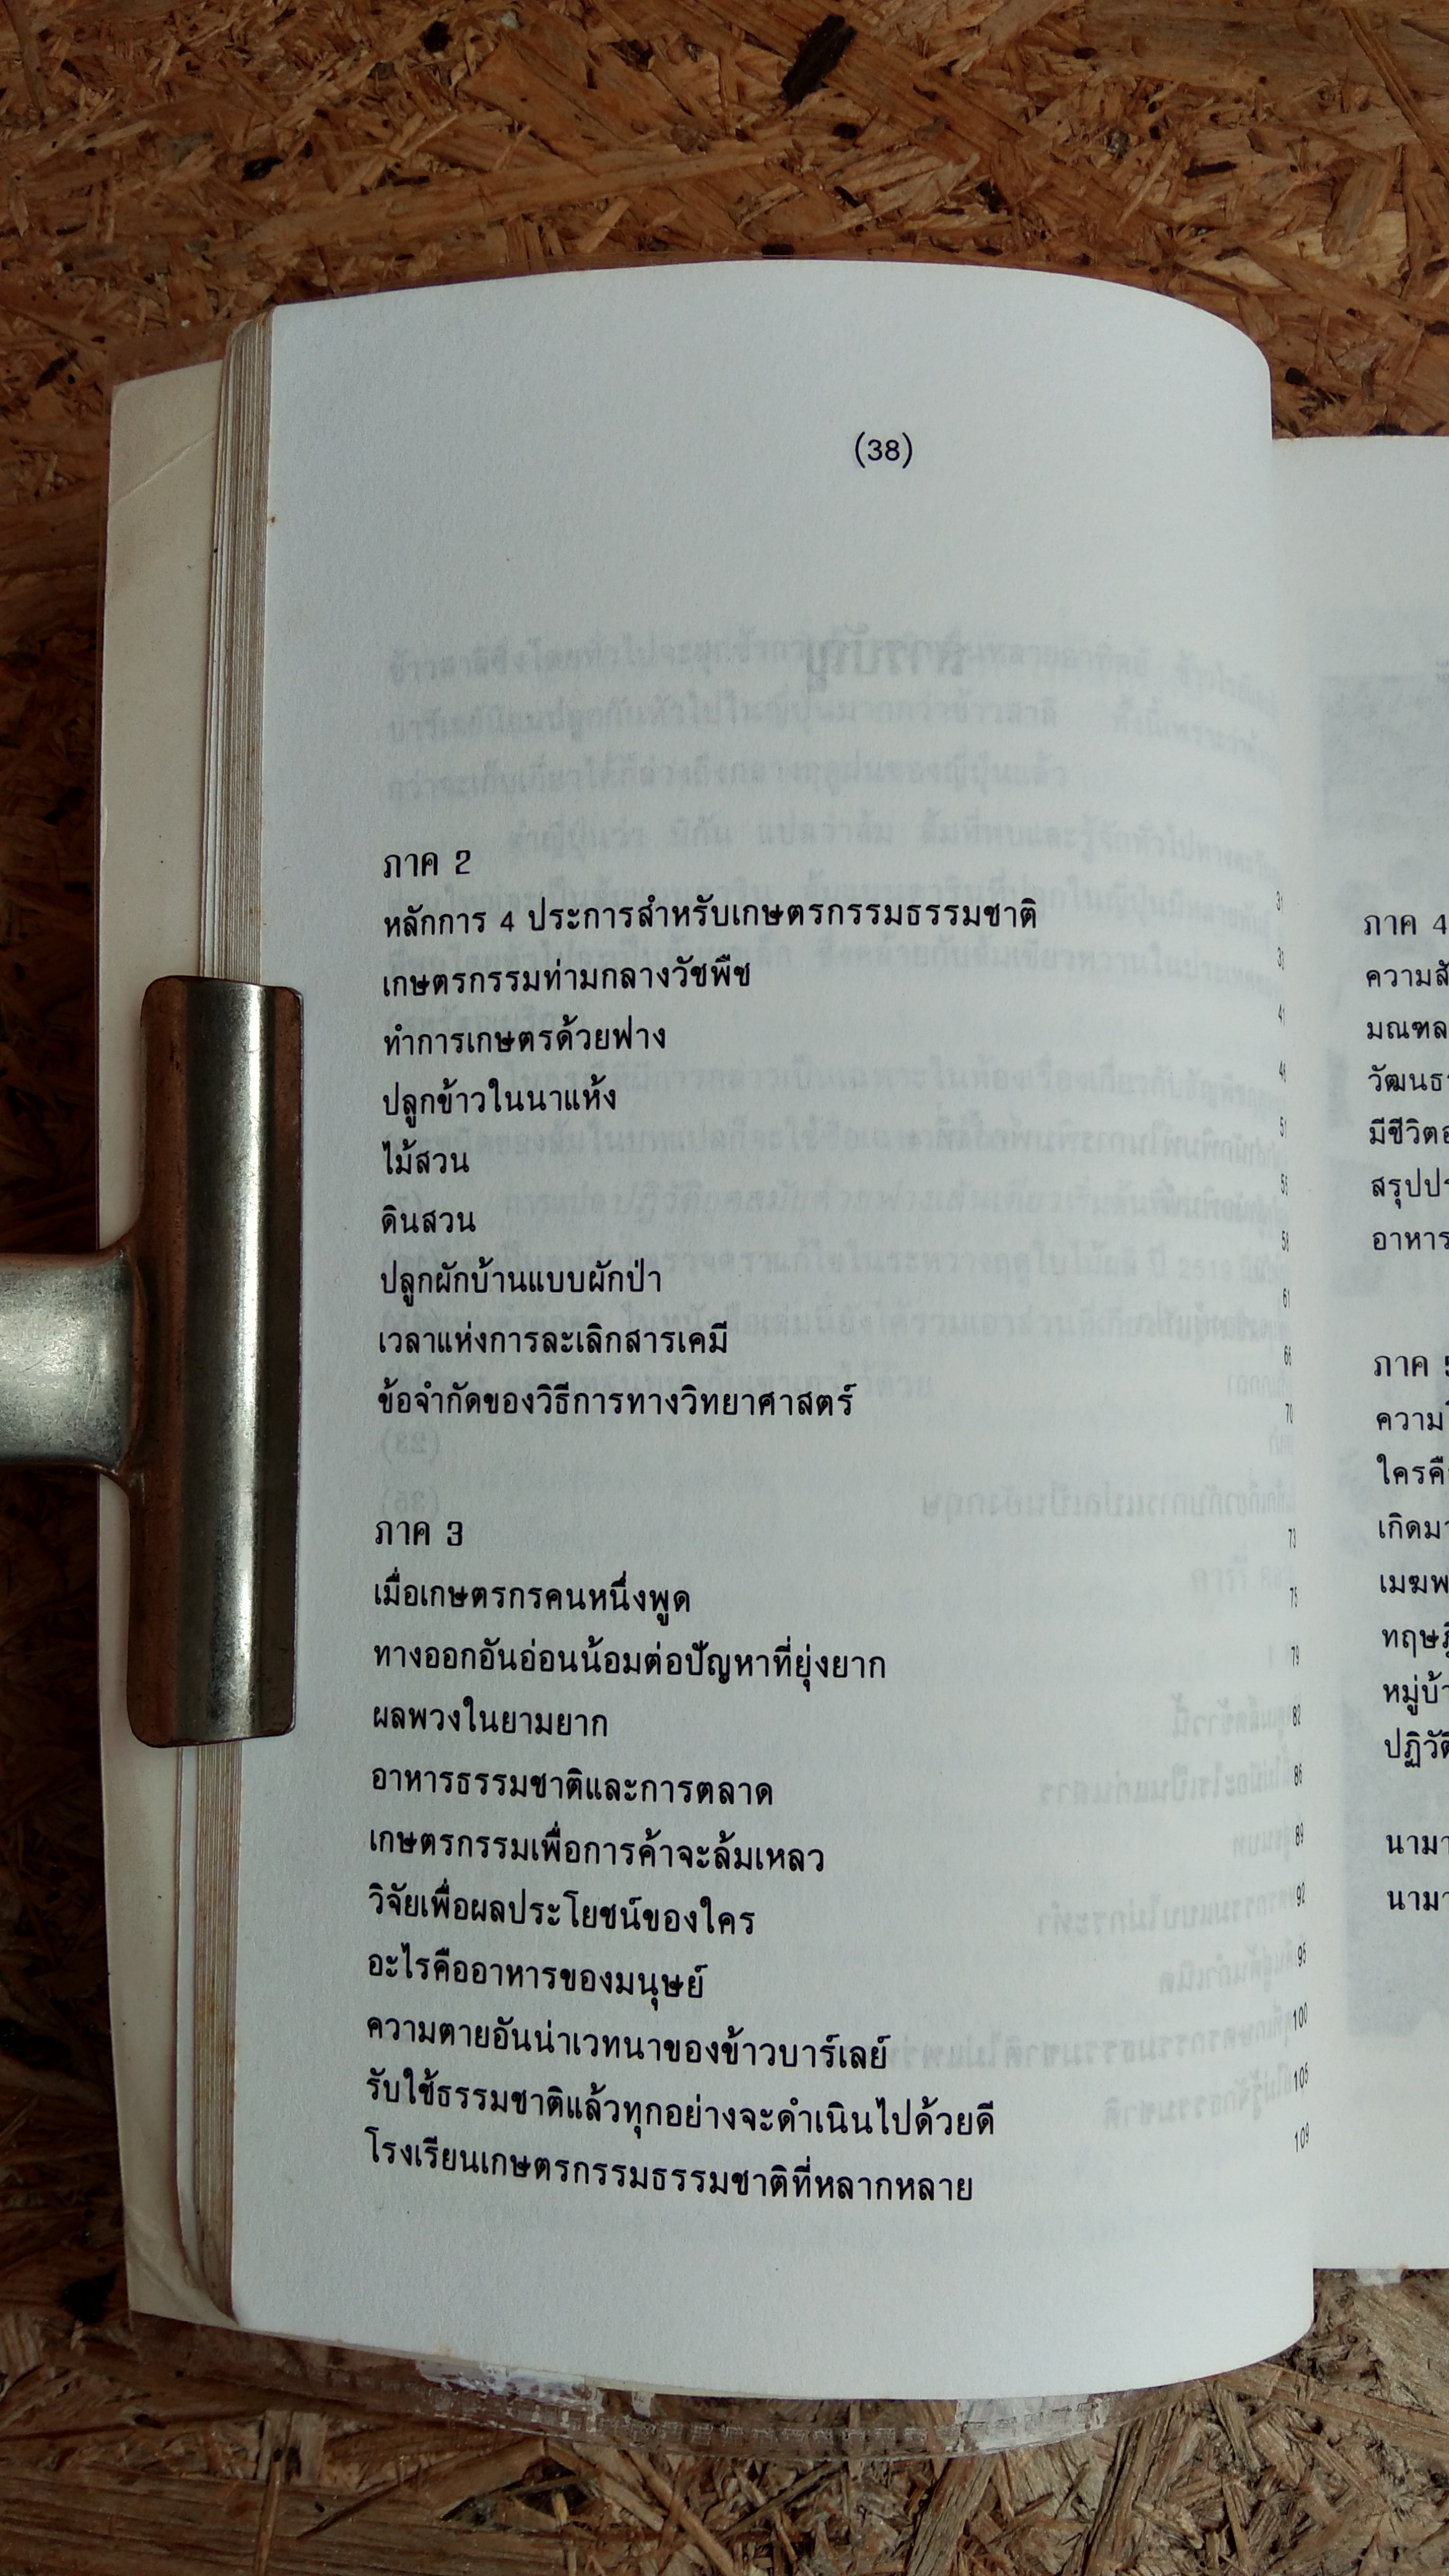 (38)
ภาค 2
หลักการ 4 ประการสำหรับเกษตรกรรมธรรมชาติ
เกษตรกรรมท่ามกลางวัชพืช
ทำการเกษตรด้วยฟาง
ปลูกข้าวในนาแห้ง
ไม้สวน
ดินสวน
ปลูกผักบ้านแบบผักป่า
เวลาแห่งการละเลิกสารเคมี
ข้อจำกัดของวิธีการทางวิทยาศาสตร์
ภาค 3
เมื่อเกษตรกรคนหนึ่งพูด 75
ทางออกอันอ่อนน้อมต่อปัญหาที่ยุ่งยาก 79
ผลพวงในยามยาก 82
อาหารธรรมชาติและการตลาด 86
เกษตรกรรมเพื่อการค้าจะล้มเหลว 89
วิจัยเพื่อผลประโยชน์ของใคร 92
อะไรคืออาหารของมนุษย์ 95
ความตายอันน่าเวทนาของข้าวบาร์เลย์ 100
รับใช้ธรรมชาติแล้วทุกอย่างจะดำเนินไปด้วยดี 105
โรงเรียนเกษตรกรรมธรรมชาติที่หลากหลาย 109
ภาค 4
มณฑล
ภาค
อาหาร